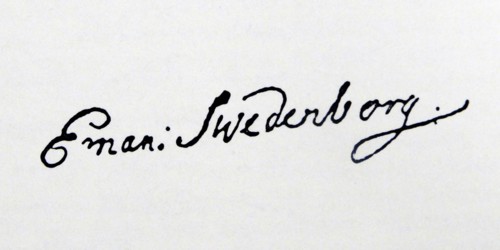 Eman: Swedenborg.